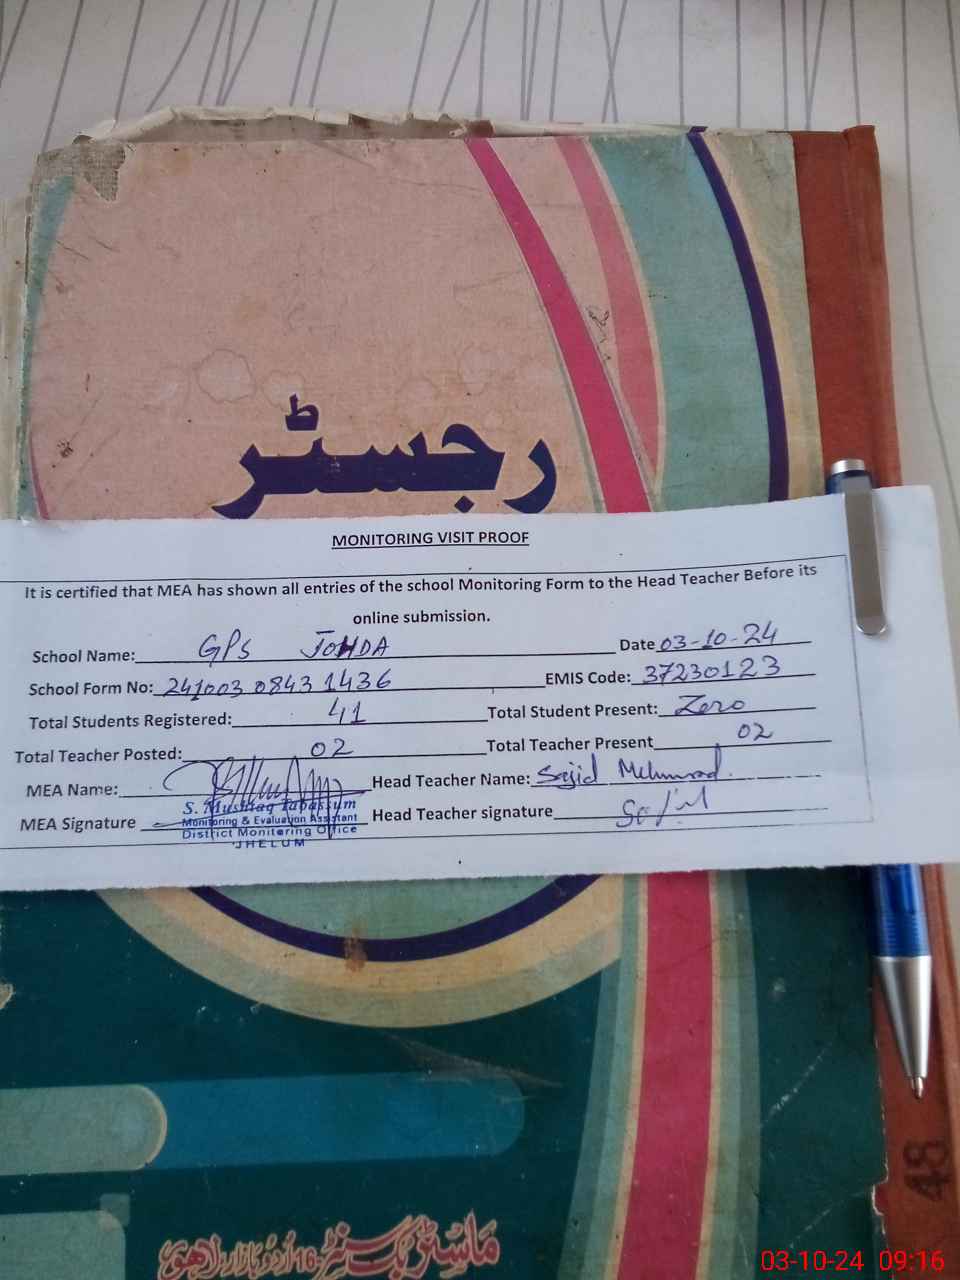 رجسٹر
MONITORING VISIT PROOF
It is certified that MEA has shown all entries of the school Monitoring Form to the Head Teacher Before its
online submission.
School Name: GPS JOHDA Date 03-10-24
School Form No: 241003 0843 1436 EMIS Code: 37230123
Total Students Registered: 41 Total Student Present: Zero
Total Teacher Posted: 02 Total Teacher Present 02
MEA Name: Head Teacher Name: Sajid Mehmood.
S. Mushtaq Tabassum
MEA Signature Head Teacher signature Sajid
Monitoring & Evaluation Assistant
District Monitoring Office
JHELUM
48
ماسٹر بک سنٹر 16 اُردو بازار لاہور
03-10-24 09:16